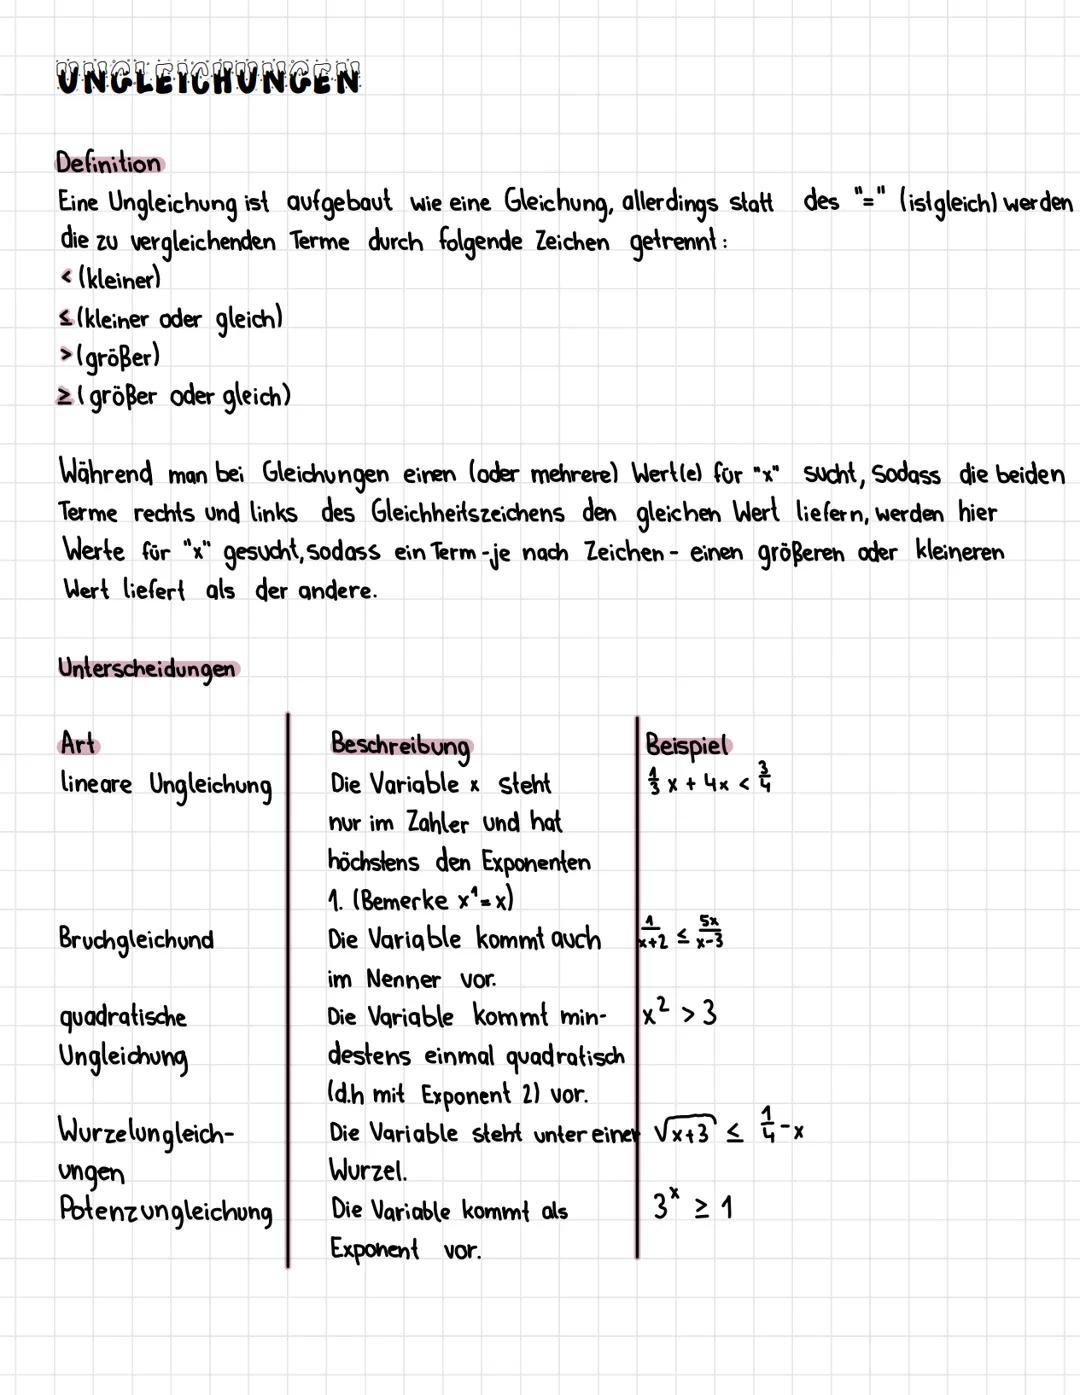 UNGLEICHUNGEN
Definition
Eine Ungleichung ist aufgebaut wie eine Gleichung, allerdings statt des "=" (istgleich) werden
die zu vergleichenden Terme durch folgende Zeichen getrennt:
< (kleiner)
≤ (kleiner oder gleich)
> (größer)
≥ (größer oder gleich)
Während man bei Gleichungen einen (oder mehrere) Wert(e) für "x" sucht, sodass die beiden
Terme rechts und links des Gleichheitszeichens den gleichen Wert liefern, werden hier
Werte für "x" gesucht, sodass ein Term - je nach Zeichen - einen größeren oder kleineren
Wert liefert als der andere.
Unterscheidungen
Art Beschreibung Beispiel
lineare Ungleichung Die Variable x steht 1/3 x + 4x < 3/4
nur im Zahler und hat
höchstens den Exponenten
1. (Bemerke x¹=x)
Bruchgleichund Die Variable kommt auch 1/(x+2) ≤ 5x/(x-3)
im Nenner vor.
quadratische Die Variable kommt min- x² > 3
Ungleichung destens einmal quadratisch
(d.h mit Exponent 2) vor.
Wurzelungleich- Die Variable steht unter einer √(x+3) ≤ 1/4 - x
ungen Wurzel.
Potenzungleichung Die Variable kommt als 3ˣ ≥ 1
Exponent vor.